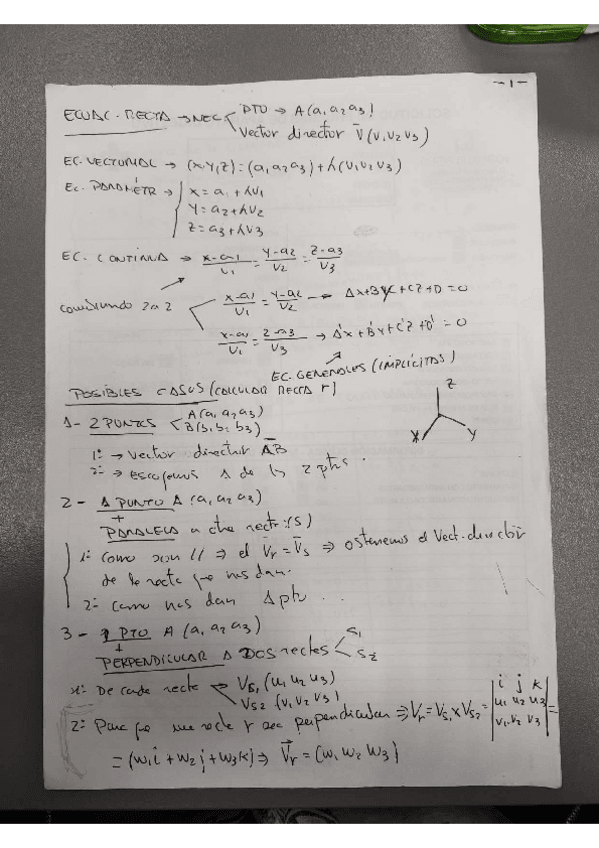 -1-
ECUAC. RECTA → NEC PTO → A(a₁ a₂ a₃)
Vector director V̄(v₁ v₂ v₃)
EC. VECTORIAL → (x, y, z) = (a₁ a₂ a₃) + λ(v₁ v₂ v₃)
Ec. PARAMÉTR → x = a₁ + λv₁
y = a₂ + λv₂
z = a₃ + λv₃
EC. CONTINUA → x-a₁/v₁ = y-a₂/v₂ = z-a₃/v₃
Combinando 2 a 2 x-a₁/v₁ = y-a₂/v₂ → Ax+By+Cz+D=0
x-a₁/v₁ = z-a₃/v₃ → A'x+B'y+C'z+D'=0
EC. GENERALES (IMPLÍCITAS)
POSIBLES CASOS (CALCULAR RECTA r)
z
x y
1- 2 PUNTOS A(a₁ a₂ a₃)
B(b₁ b₂ b₃)
1º → vector director A̅B̅
2º → escogemos 1 de los 2 ptos.
2- 1 PUNTO A (a₁ a₂ a₃)
+
PARALELA a otra recta: (s)
1º Como son // ⇒ el V̄r = V̄s ⇒ obtenemos el Vect. director
de la recta que nos dan.
2º como nos dan 1 pto ...
3- 1 PTO A (a₁ a₂ a₃)
+
PERPENDICULAR A DOS rectas s₁
s₂
1º De cada recta → Vs₁ (u₁ u₂ u₃)
Vs₂ (v₁ v₂ v₃)
2º Para que una recta r sea perpendicular ⇒ V̄r = V̄s₁ x V̄s₂ = | i j k |
| u₁ u₂ u₃ | =
| v₁ v₂ v₃ |
= (w₁i + w₂j + w₃k) ⇒ V⃗r = (w₁ w₂ w₃)